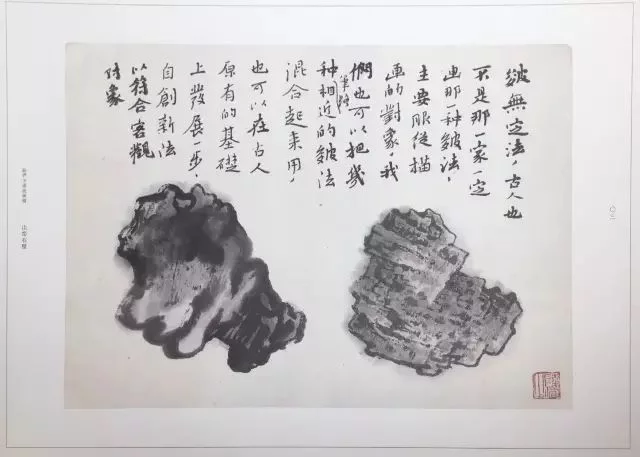 皴無定法，古人也
不是那一家一定
画那一种皴法，
主要服從描
画的對象，我
們也可以把幾
種筆路相近的皴法
混合起来用，
也可以在古人
原有的基礎
上發展一步，
自創新法
以符合客觀
对象
〇三